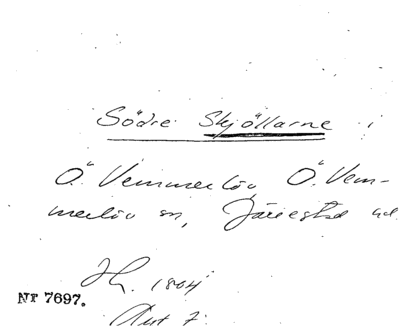 Södre Skjöllarne i
Ö. Vemmerlöv, Ö. Vem-
merlöv sn, Järrestad hd.
1804
Nr 7697.
Akt 7.